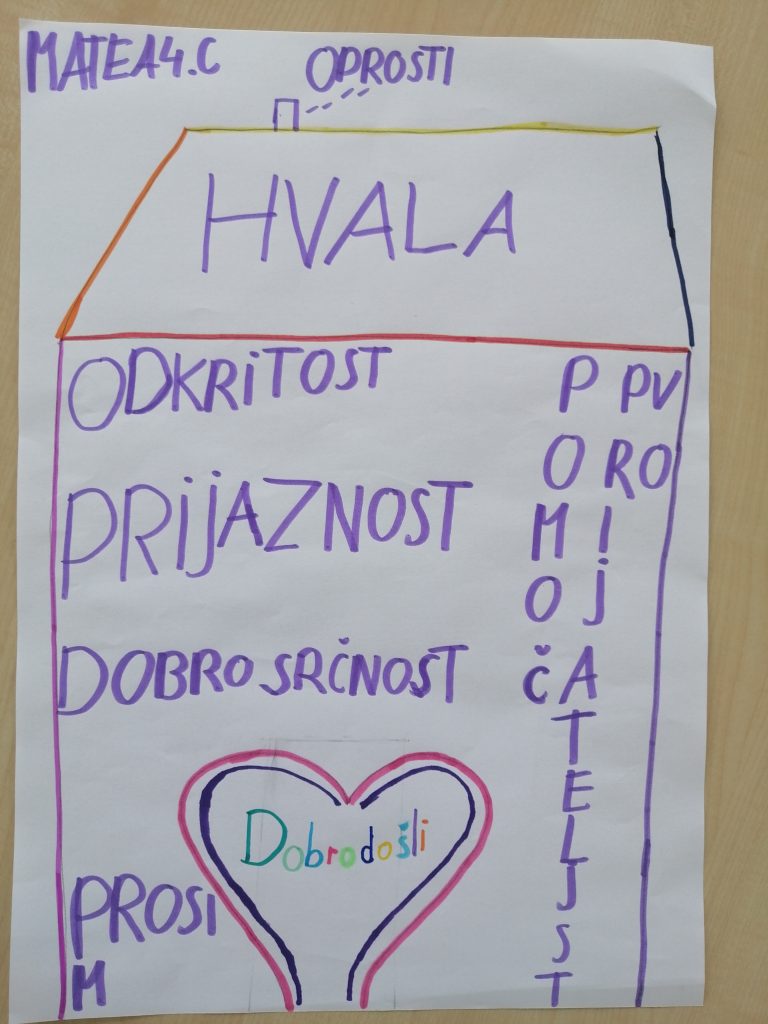 MATEA 4.C
OPROSTI
HVALA
ODKRITOST
PRIJAZNOST
DOBROSRČNOST
Dobrodošli
PROSI
M
POMOČ
PRIJATELJST
VO